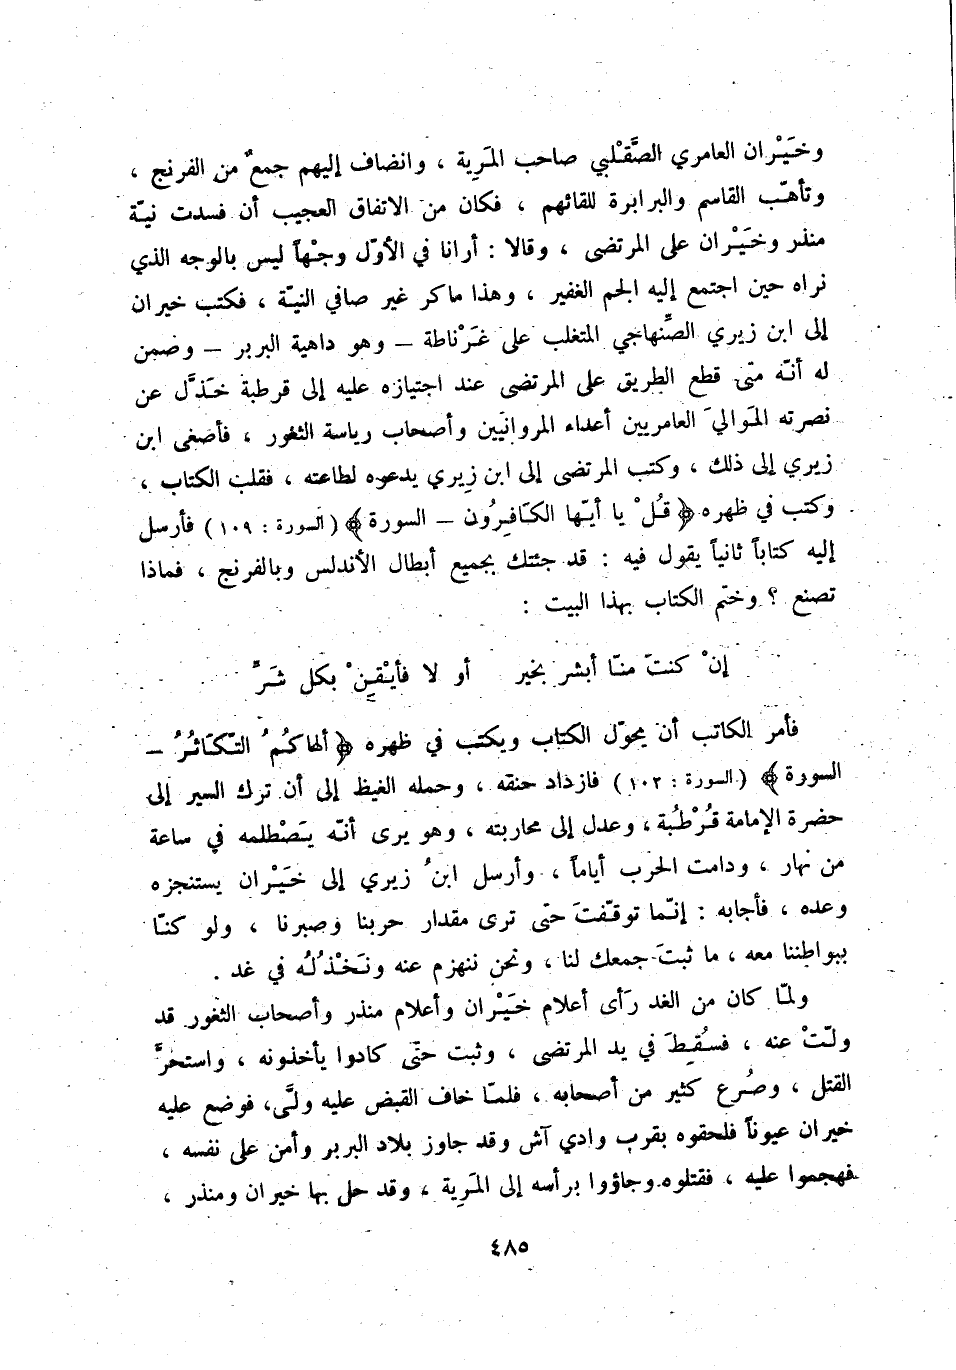 وخَيْران العامري الصَّقْلبي صاحب المَرِية ، وانضاف إليهم جمعٌ من الفرنج ،
وتأهّب القاسم والبرابرة للقائهم ، فكان من الاتفاق العجيب أن فسدت نيّة
منذر وخَيْران على المرتضى ، وقالا : أرانا في الأوّل وجْهاً ليس بالوجه الذي
نراه حين اجتمع إليه الجم الغفير ، وهذا ماكر غير صافي النيّة ، فكتب خيران
إلى ابن زيري الصِّنْهاجي المتغلب على غَرْناطة – وهو داهية البربر – وضمن
له أنّه متى قطع الطريق على المرتضى عند اجتيازه عليه إلى قرطبة خَذَّل عن
نصرته المَواليَ العامريين أعداء المروانيّين وأصحاب رياسة الثغور ، فأصغى ابن
زيري إلى ذلك ، وكتب المرتضى إلى ابن زِيري يدعوه لطاعته ، فقلب الكتاب ،
وكتب في ظهره ﴿ قُلْ يا أيّها الكَافِرُون – السورة ﴾ ( السورة : ١٠٩ ) فأرسل
إليه كتاباً ثانياً يقول فيه : قد جئتك بجميع أبطال الأندلس وبالفرنج ، فماذا
تصنع ؟ وختم الكتاب بهذا البيت :
إنْ كنتَ منّا أبشر بخير أو لا فأيْقِنْ بكل شَرَّ
فأمر الكاتب أن يحوّل الكتاب ويكتب في ظهره ﴿ ألهاكُمُ التّكَاثُرُ –
السورة ﴾ ( السورة : ١٠٢ ) فازداد حنقه ، وحمله الغيظ إلى أن ترك السير إلى
حضرة الإمامة قُرْطُبة ، وعدل إلى محاربته ، وهو يرى أنّه يَصْطلمه في ساعة
من نهار ، ودامت الحرب أياماً ، وأرسل ابنُ زيري إلى خَيْران يستنجزه
وعده ، فأجابه : إنّما توقّفتَ حتى ترى مقدار حربنا وصبرنا ، ولو كنّا
ببواطننا معه ، ما ثبتَ جمعك لنا ، ونحن ننهزم عنه ونَخْذُلُه في غد .
ولمّا كان من الغد رَأى أعلام خَيْران وأعلام منذر وأصحاب الثغور قد
ولّتْ عنه ، فسُقِطَ في يد المرتضى ، وثبت حتّى كادوا يأخذونه ، واستحرَّ
القتل ، وصُرع كثير من أصحابه ، فلمّا خاف القبض عليه ولَّى ، فوضع عليه
خيران عيوناً فلحقوه بقرب وادي آش وقد جاوز بلاد البربر وأمن على نفسه ،
فهجموا عليه ، فقتلوه وجاؤوا برأسه إلى المَرِية ، وقد حل بها خيران ومنذر ،
٤٨٥